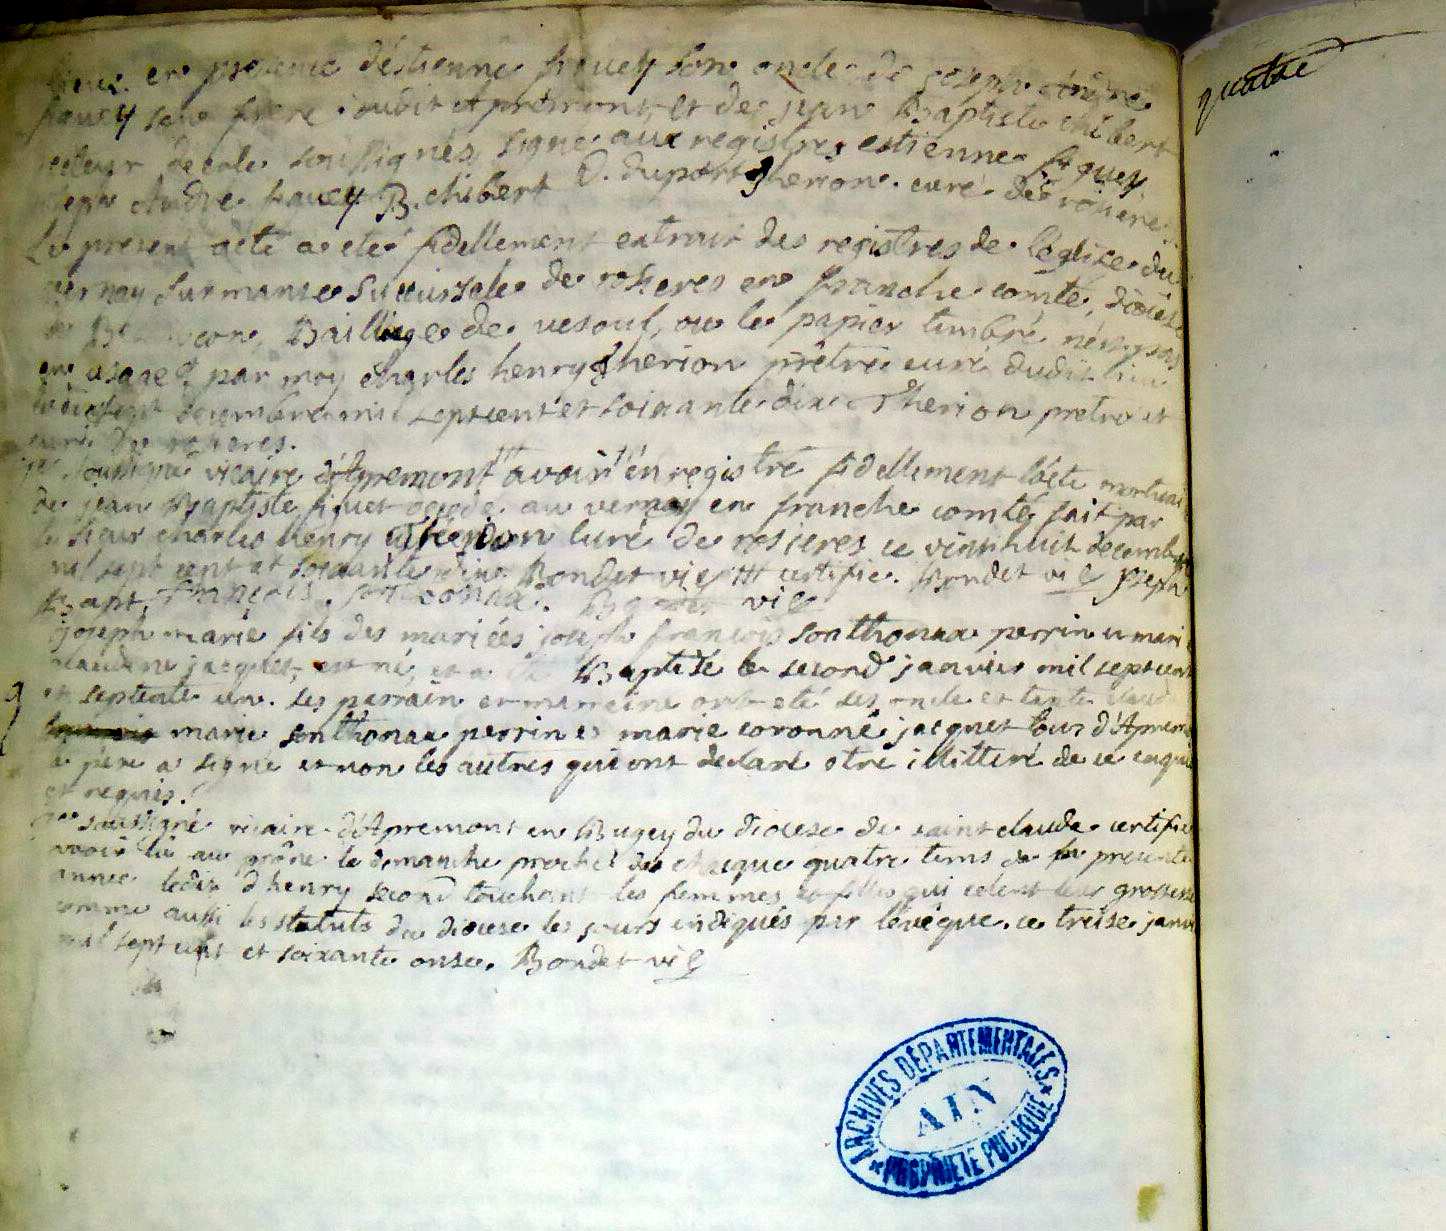 lieux en presence d'éstienne figuey son oncle de joseph André
figuey son frere dudit Apremont, et de jean Baptiste chibert
recteur decole soussignés, signe aux registres estienne figuey
joseph André figuey B. chibert D. duport therion curé de rosieres.
Le present acte a eté fidellement extrait des registres de l'églize du
vernoy sur mance succursale de rosieres en franche comté, diocèse
de Besançon, Bailliage de vesoul, ou le papier timbré n'est pas
en usage par moy charles henry therion prêtre curé dudit lieu
decembre mil sept cent et soixante dix Therion pretre et
curé de rosieres.
je soussigné vicaire d'Apremont avoir enregistré fidellement l'acte mortuaire
de jean Baptiste figuet decedé au vernoy en franche comté, fait par
le sieur charles henry Therion curé de rosieres ce vint huit decembre
mil sept cent et soixante dix. Bondet vic certifie. Bondet vic joseph
Bapt. François sonthonax. Bondet vic
joseph marie fils des mariées joseph françois sonthonax perrin et marie
claudine jacquet, est né, et a été Baptisé le second janvier mil sept cent
et septente un. ses parrain et marreine ont eté ses oncle et tante claud
marie sonthonax perrin et marie coronne jacquet tous d'Apremont
le père a signé et non les autres qui ont declaré etre illitteré de ce enquis
et requis.
je soussigné vicaire d'Apremont en Bugey du diocese de saint claude certifie
avoir lû au prône le dimanche proche de chaque quatre tems de la presente
annee ledit d'henry second touchant les femmes et filles qui celent leur grossesse
comme aussi les statuts du diocese les jours indiqués par l'évêque. ce treise janvier
mil sept cent et soixante onse. Bondet vic
quatre
ARCHIVES DÉPARTEMENTALES
AIN
PROPRIÉTÉ PUBLIQUE